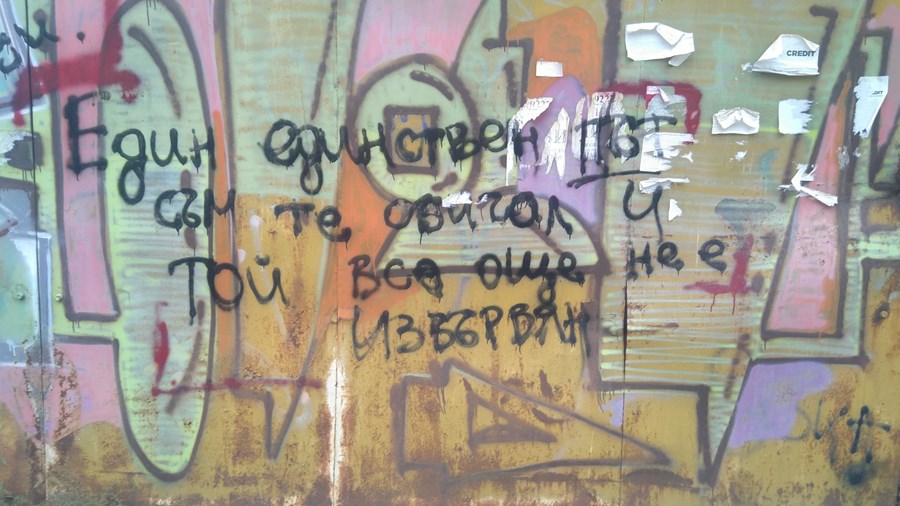 CREDIT
Един единствен път
съм те обичал и
Той все още не е
ИЗВЪРВЯН